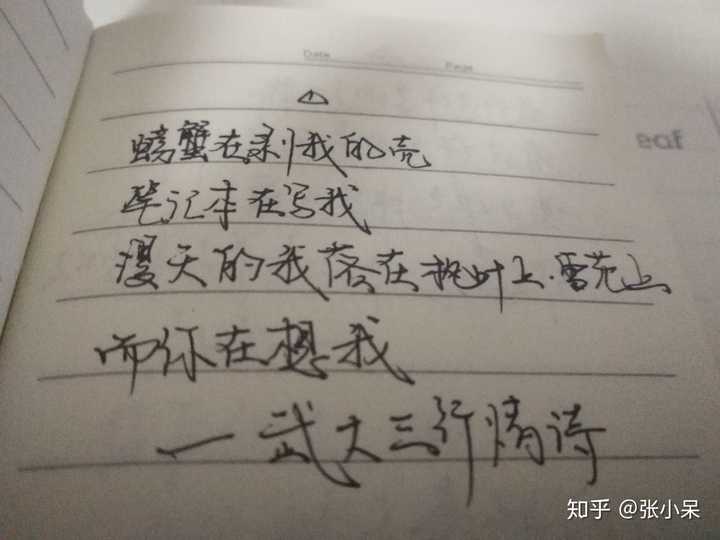 Date Page
①
螃蟹在剥我的壳
笔记本在写我
漫天的我落在枫叶上.雪花上
而你在想我
—武大三行情诗
eaf
知乎 @张小呆